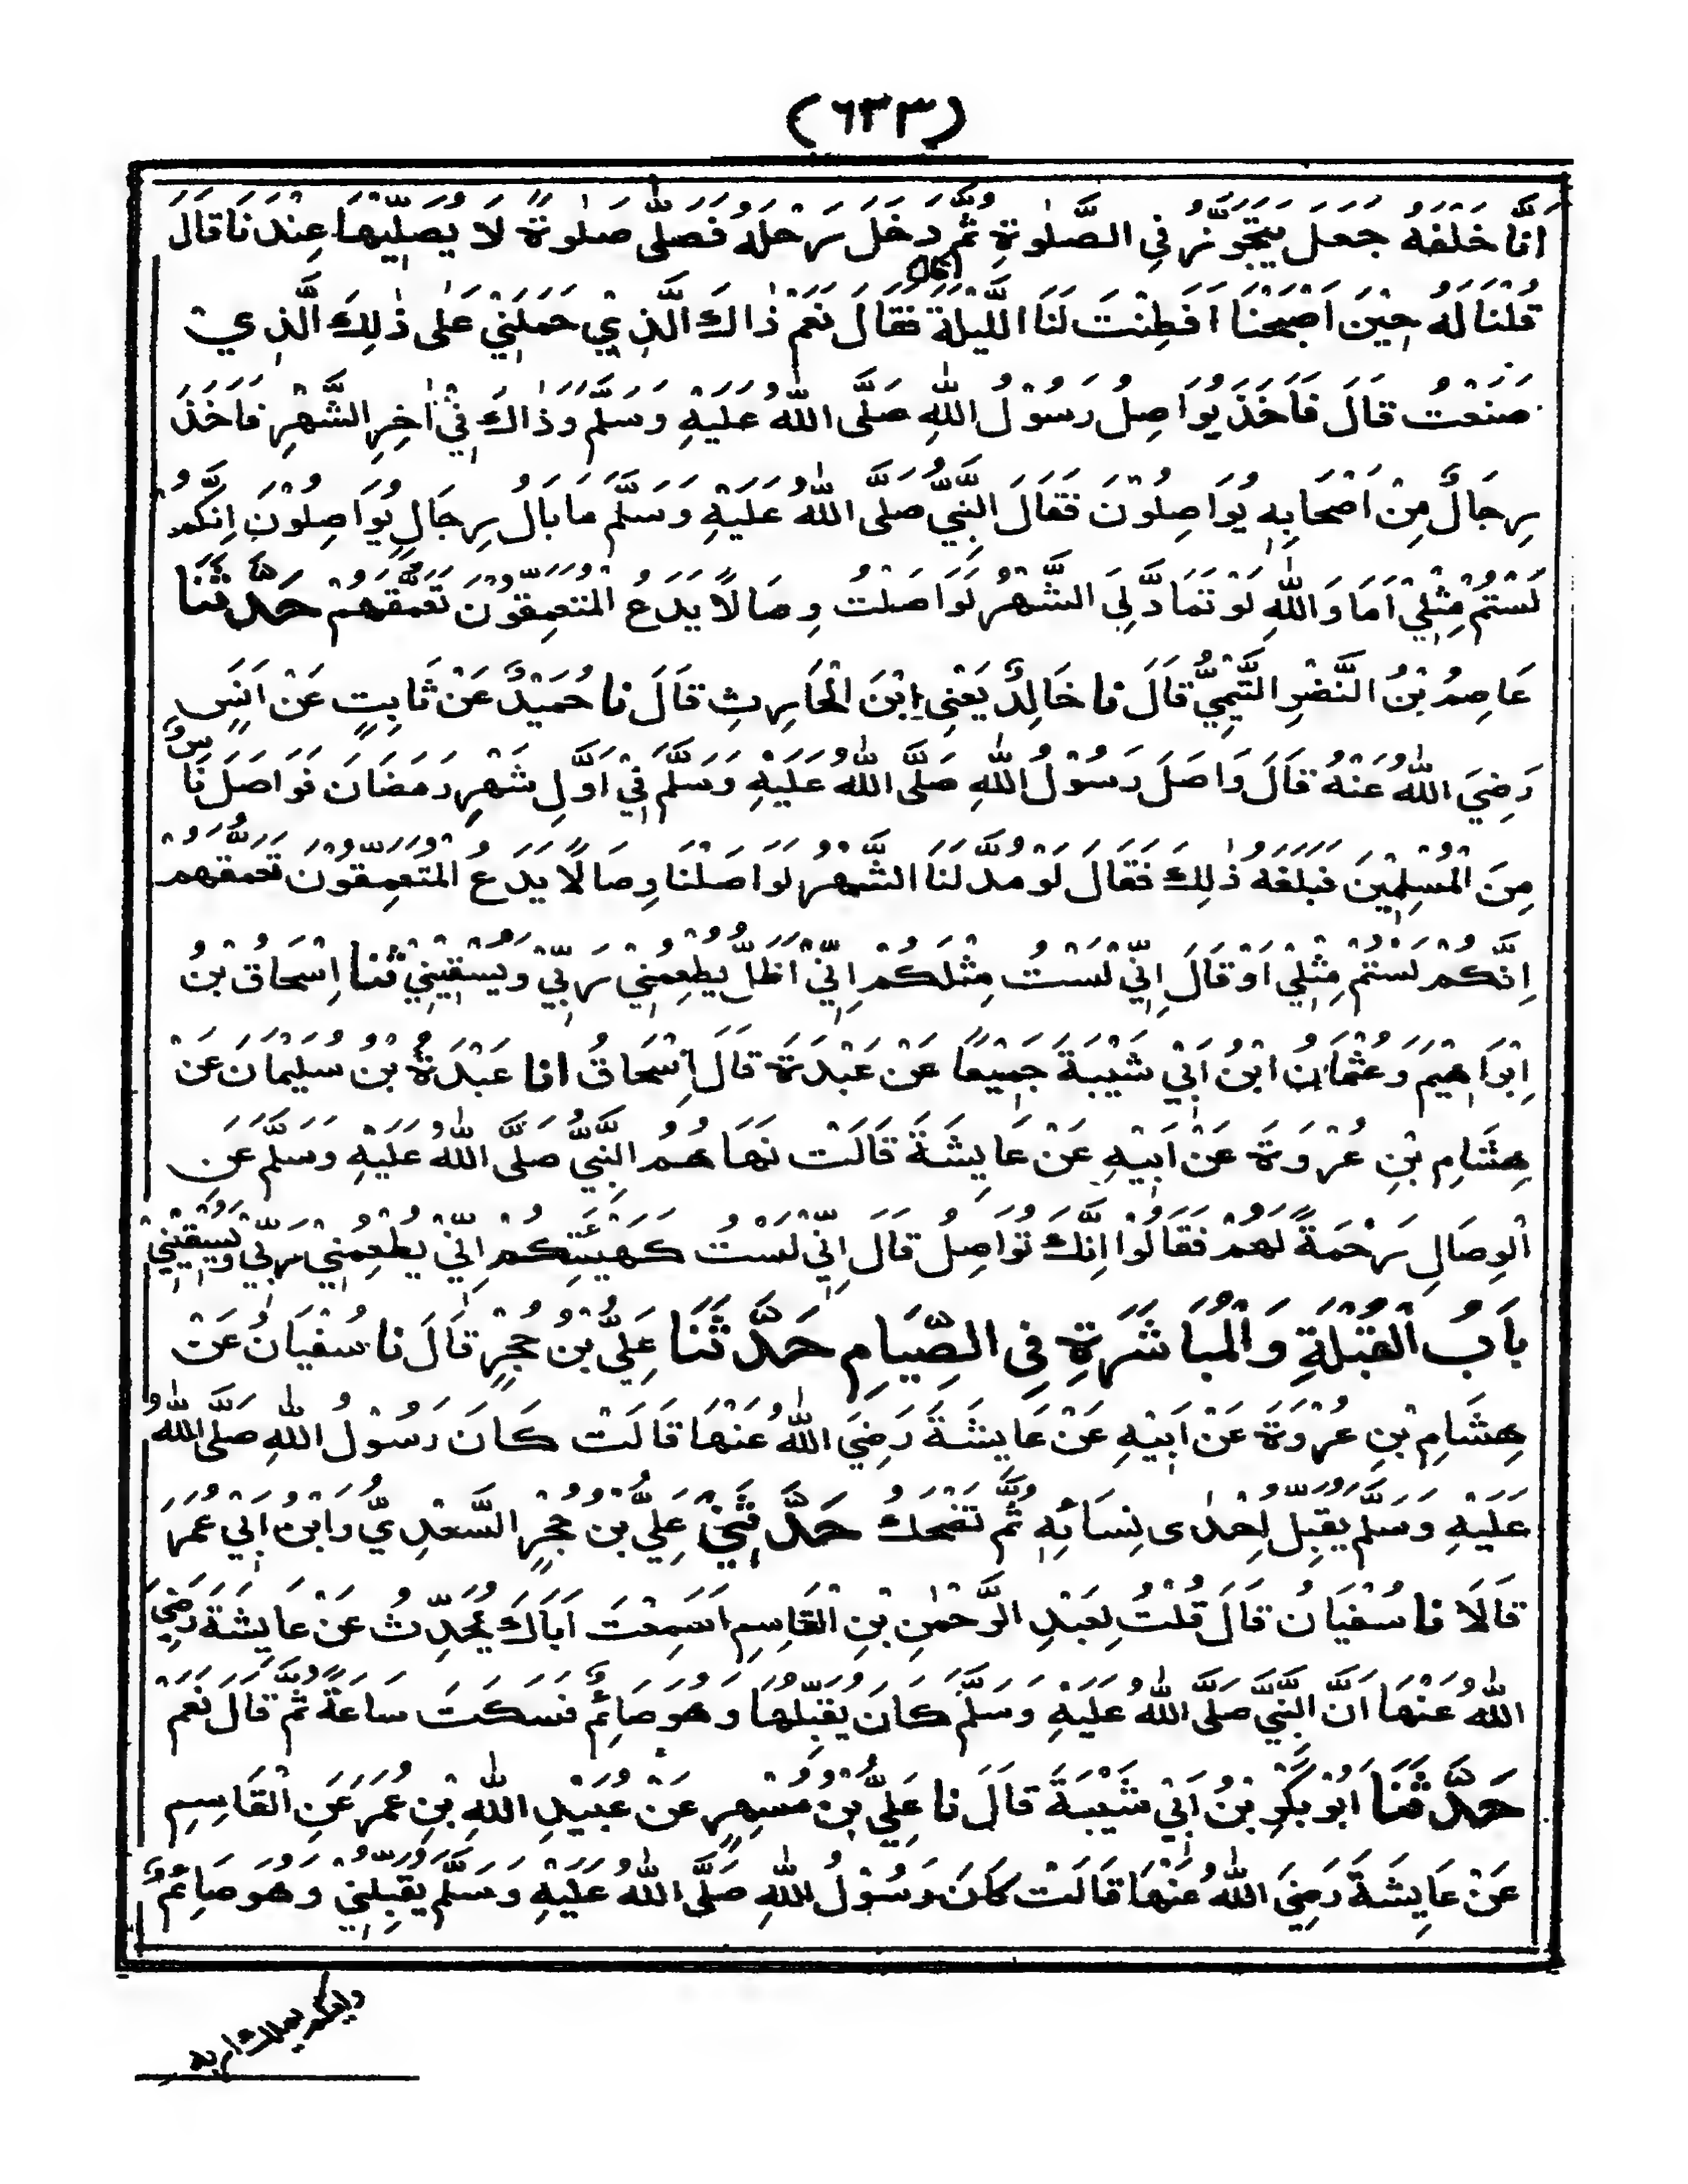 (٦٣٣)
اَنَّا خَلْفَهُ جَعَلَ يَتَجَوَّزُ فِي الصَّلٰوةِ ثُمَّ دَخَلَ رَحْلَهُ فَصَلّٰى صَلٰوةً لَا يُصَلِّيْهَا عِنْدَنَا قَالَ
قُلْنَا لَهُ حِيْنَ اَصْبَحْنَا اَفَطِنْتَ لَنَا اللَّيْلَةَ فَقَالَ نَعَمْ ذَاكَ الَّذِيْ حَمَلَنِيْ عَلٰى ذٰلِكَ الَّذِيْ
صَنَعْتُ قَالَ فَاَخَذَ يُوَاصِلُ رَسُوْلُ اللّٰهِ صَلَّى اللّٰهُ عَلَيْهِ وَسَلَّمَ وَذَاكَ فِيْ اٰخِرِ الشَّهْرِ فَاَخَذَ
رِجَالٌ مِنْ اَصْحَابِهِ يُوَاصِلُوْنَ فَقَالَ النَّبِيُّ صَلَّى اللّٰهُ عَلَيْهِ وَسَلَّمَ مَا بَالُ رِجَالٍ يُوَاصِلُوْنَ اِنَّكُمْ
لَسْتُمْ مِثْلِيْ اَمَا وَاللّٰهِ لَوْ تَمَادَّ لِيَ الشَّهْرُ لَوَاصَلْتُ وِصَالًا يَدَعُ الْمُتَعَمِّقُوْنَ تَعَمُّقَهُمْ حَدَّثَنَا
عَاصِمُ بْنُ النَّضْرِ التَّيْمِيُّ قَالَ نا خَالِدٌ يَعْنِي اِبْنَ الْحَارِثِ قَالَ نا حُمَيْدٌ عَنْ ثَابِتٍ عَنْ اَنَسٍ
رَضِيَ اللّٰهُ عَنْهُ قَالَ وَاصَلَ رَسُوْلُ اللّٰهِ صَلَّى اللّٰهُ عَلَيْهِ وَسَلَّمَ فِيْ اَوَّلِ شَهْرِ رَمَضَانَ فَوَاصَلَ نَاسٌ
مِنَ الْمُسْلِمِيْنَ فَبَلَغَهُ ذٰلِكَ فَقَالَ لَوْ مُدَّ لَنَا الشَّهْرُ لَوَاصَلْنَا وِصَالًا يَدَعُ الْمُتَعَمِّقُوْنَ تَعَمُّقَهُمْ
اِنَّكُمْ لَسْتُمْ مِثْلِيْ اَوْ قَالَ اِنِّيْ لَسْتُ مِثْلَكُمْ اِنِّيْ اَظَلُّ يُطْعِمُنِيْ رَبِّيْ وَيَسْقِيْنِيْ ثنا اِسْحَاقُ بْنُ
اِبْرَاهِيْمَ وَعُثْمَانُ ابْنُ اَبِيْ شَيْبَةَ جَمِيْعًا عَنْ عَبْدَةَ قَالَ اِسْحَاقُ انا عَبْدَةُ بْنُ سُلَيْمَانَ عَنْ
هِشَامِ بْنِ عُرْوَةَ عَنْ اَبِيْهِ عَنْ عَايِشَةَ قَالَتْ نَهَاهُمُ النَّبِيُّ صَلَّى اللّٰهُ عَلَيْهِ وَسَلَّمَ عَنِ
الْوِصَالِ رَحْمَةً لَهُمْ فَقَالُوْا اِنَّكَ تُوَاصِلُ قَالَ اِنِّيْ لَسْتُ كَهَيْئَتِكُمْ اِنِّيْ يُطْعِمُنِيْ رَبِّيْ وَيَسْقِيْنِيْ
بَابُ الْقُبْلَةِ وَالْمُبَاشَرَةِ فِي الصِّيَامِ حَدَّثَنَا عَلِيُّ بْنُ حُجْرٍ قَالَ نا سُفْيَانُ عَنْ
هِشَامِ بْنِ عُرْوَةَ عَنْ اَبِيْهِ عَنْ عَايِشَةَ رَضِيَ اللّٰهُ عَنْهَا قَالَتْ كَانَ رَسُوْلُ اللّٰهِ صَلَّى اللّٰهُ
عَلَيْهِ وَسَلَّمَ يُقَبِّلُ اِحْدٰى نِسَائِهِ ثُمَّ تَضْحَكُ حَدَّثَنِيْ عَلِيُّ بْنُ حُجْرٍ السَّعْدِيُّ وَابْنُ اَبِيْ عُمَرَ
قَالَا نا سُفْيَانُ قَالَ قُلْتُ لِعَبْدِ الرَّحْمٰنِ بْنِ الْقَاسِمِ اَسَمِعْتَ اَبَاكَ يُحَدِّثُ عَنْ عَايِشَةَ رَضِيَ
اللّٰهُ عَنْهَا اَنَّ النَّبِيَّ صَلَّى اللّٰهُ عَلَيْهِ وَسَلَّمَ كَانَ يُقَبِّلُهَا وَهُوَ صَائِمٌ فَسَكَتَ سَاعَةً ثُمَّ قَالَ نَعَمْ
حَدَّثَنَا اَبُوْ بَكْرِ بْنُ اَبِيْ شَيْبَةَ قَالَ نا عَلِيُّ بْنُ مُسْهِرٍ عَنْ عُبَيْدِ اللّٰهِ بْنِ عُمَرَ عَنِ الْقَاسِمِ
عَنْ عَايِشَةَ رَضِيَ اللّٰهُ عَنْهَا قَالَتْ كَانَ رَسُوْلُ اللّٰهِ صَلَّى اللّٰهُ عَلَيْهِ وَسَلَّمَ يُقَبِّلُنِيْ وَهُوَ صَائِمٌ
وايكم يملك اربه